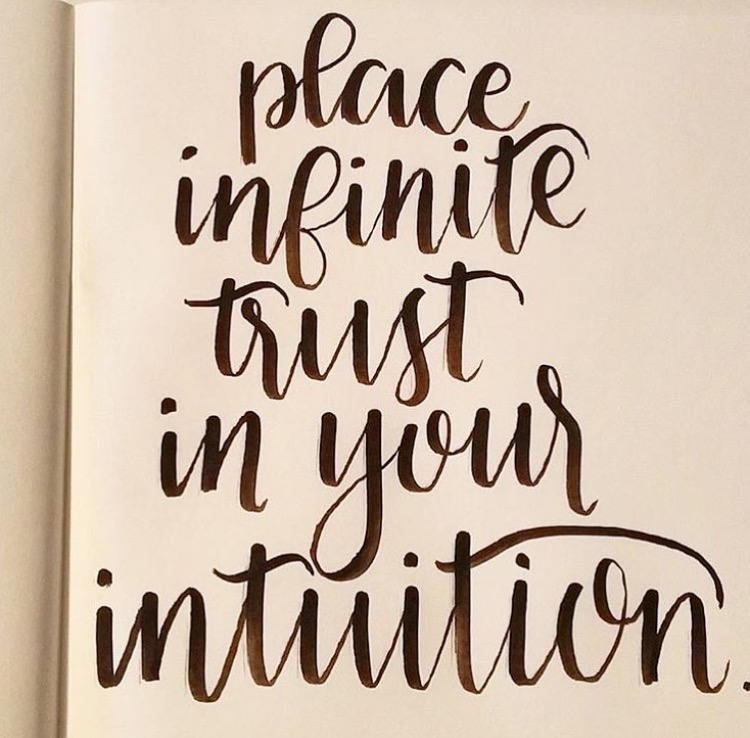 place
infinite
trust
in your
intuition.